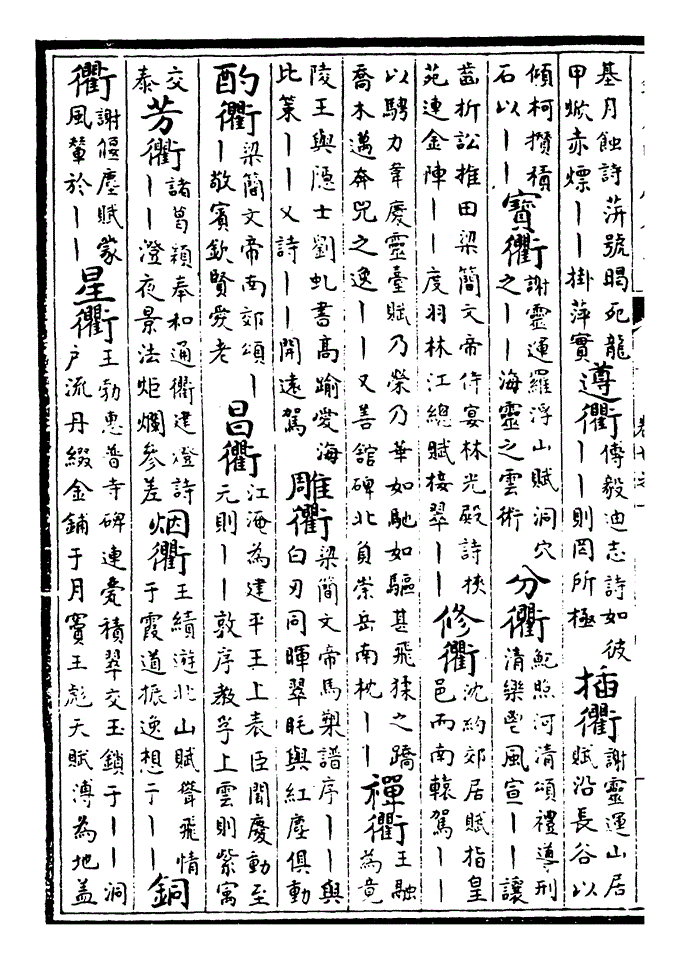 基月蝕詩蓱號暍死龍甲焮赤熛丨丨掛萍實遵衢傅毅迪志詩如彼丨丨則罔所極插衢謝靈運山居賦沿長谷以
傾柯攢積石以丨丨寶衢謝靈運羅浮山賦洞穴之丨丨海靈之雲術分衢鮑照河清頌禮導刑清樂鬯風宣丨丨讓
齒折訟推田梁簡文帝侍宴林光殿詩挾苑連金陣丨丨度羽林江總賦接翠丨丨修衢沈約郊居賦指皇邑而南轅駕丨丨
以騁力韋慶靈臺賦乃榮乃華如馳如驅甚飛猱之蹻喬木邁奔兕之逸丨丨又善舘碑北負崇岳南枕丨丨禪衢王融為竟
陵王與隱士劉虬書高踰愛海比策丨丨又詩丨丨開遠駕雕衢梁簡文帝馬槊譜序丨丨與白刃同暉翠眊與紅塵俱動
酌衢梁簡文帝南郊頌丨丨敬賓欽賢愛老昌衢江淹為建平王上表臣聞慶動至元則丨丨敦序教孚上雲則紫寓
交泰芳衢諸葛穎奉和通衢建燈詩丨丨澄夜景法炬爛參差烟衢王績遊北山賦聳飛情于霞道振逸想于丨丨銅
衢謝偃塵賦蒙風輦於丨丨星衢王勃惠普寺碑連甍積翠交玉鎖于丨丨洞户流丹綴金鋪于月竇王彪天賦溥為地蓋